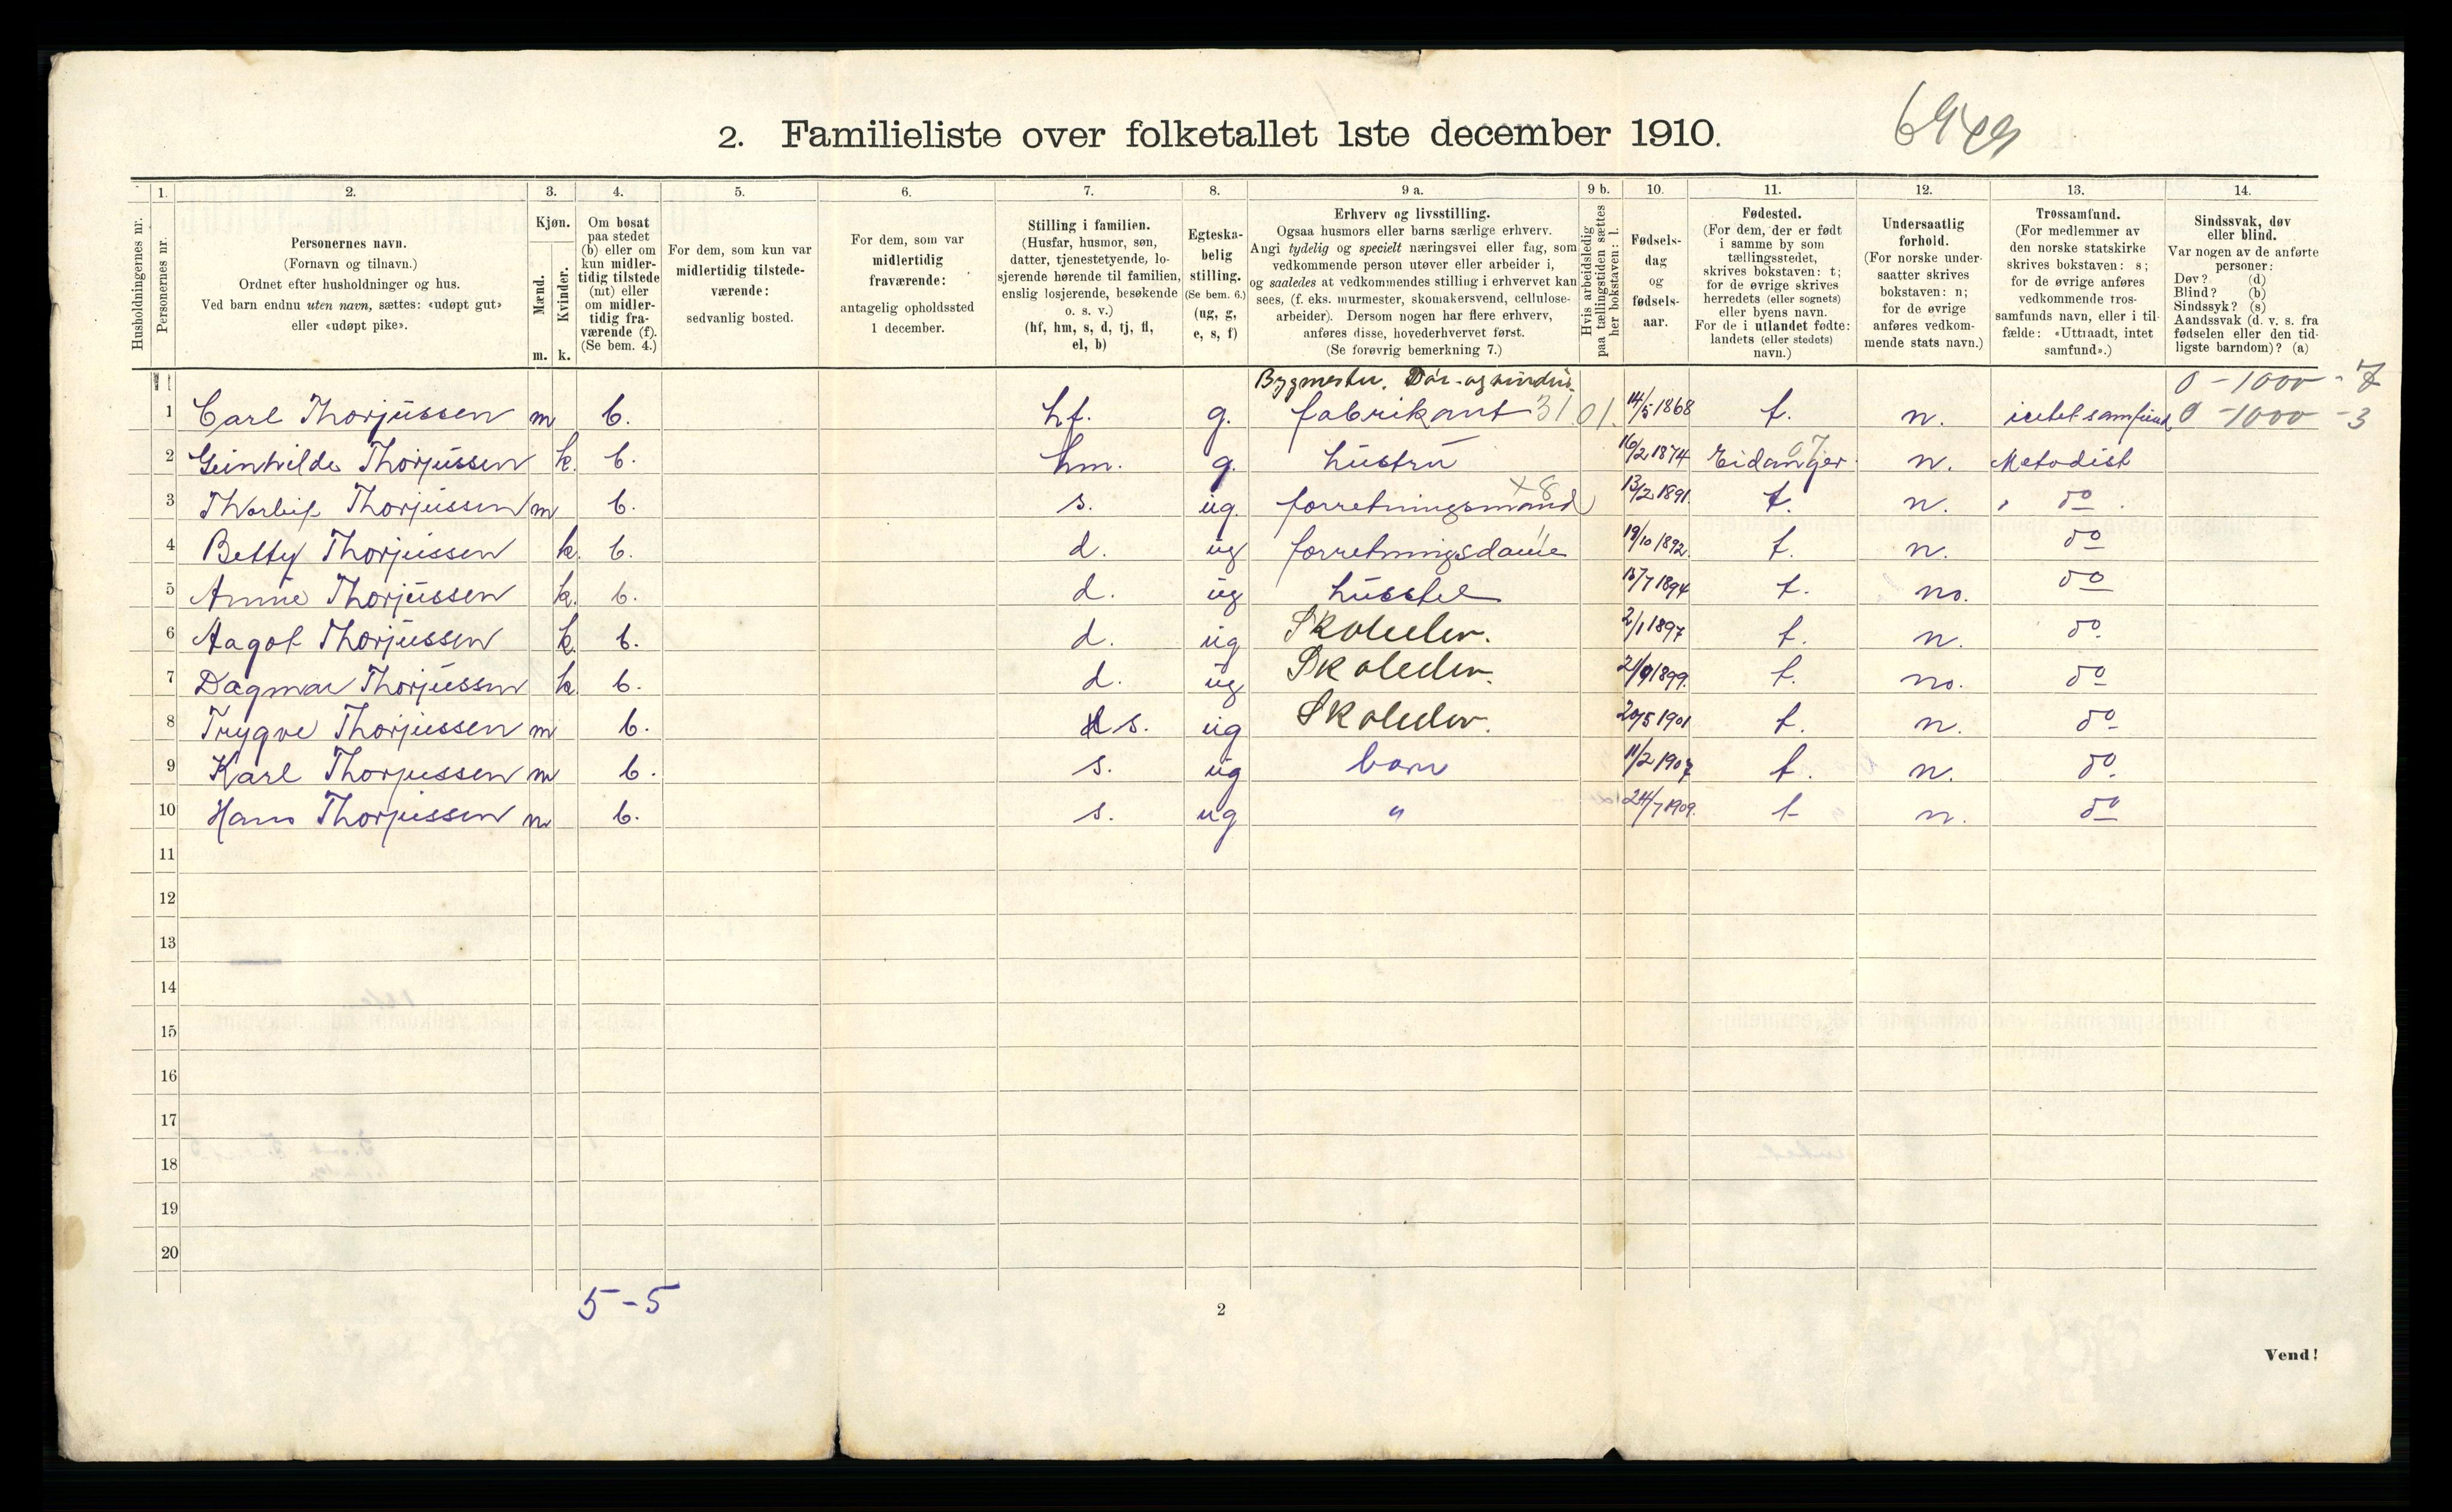 2. Familieliste over folketallet 1ste december 1910.
1. 2. 3. 4. 5. 6. 7. 8. 9 a. 9 b. 10. 11. 12. 13. 14.
Husholdningernes nr.
Personernes nr.
Personernes navn.
(Fornavn og tilnavn.)
Ordnet efter husholdninger og hus.
Ved barn endnu uten navn, sættes: «udøpt gut»
eller «udøpt pike».
Kjøn.
Mænd.
Kvinder.
m. k.
Om bosat
paa stedet
(b) eller om
kun midler-
tidig tilstede
(mt) eller
om midler-
tidig fra-
værende (f).
(Se bem. 4.)
For dem, som kun var
midlertidig tilstede-
værende:
sedvanlig bosted.
For dem, som var
midlertidig
fraværende:
antagelig opholdssted
1 december.
Stilling i familien.
(Husfar, husmor, søn,
datter, tjenestetyende, lo-
sjerende hørende til familien,
enslig losjerende, besøkende
o. s. v.)
(hf, hm, s, d, tj, fl,
el, b)
Egteska-
belig
stilling.
(Se bem. 6.)
(ug, g,
e, s, f)
Erhverv og livsstilling.
Ogsaa husmors eller barns særlige erhverv.
Angi tydelig og specielt næringsvei eller fag, som
vedkommende person utøver eller arbeider i,
og saaledes at vedkommendes stilling i erhvervet kan
sees, (f. eks. murmester, skomakersvend, cellulose-
arbeider). Dersom nogen har flere erhverv,
anføres disse, hovederhvervet først.
(Se forøvrig bemerkning 7.)
Hvis arbeidsledig
paa tællingstiden sættes
her bokstaven: l.
Fødsels-
dag
og
fødsels-
aar.
Fødested.
(For dem, der er født
i samme by som
tællingsstedet,
skrives bokstaven: t;
for de øvrige skrives
herredets (eller sognets)
eller byens navn.
For de i utlandet fødte:
landets (eller stedets)
navn.)
Undersaatlig
forhold.
(For norske under-
saatter skrives
bokstaven: n;
for de øvrige
anføres vedkom-
mende stats navn.)
Trossamfund.
(For medlemmer av
den norske statskirke
skrives bokstaven: s;
for de øvrige anføres
vedkommende tros-
samfunds navn, eller i til-
fælde: «Uttraadt, intet
samfund».)
Sindssvak, døv
eller blind.
Var nogen av de anførte
personer:
Døv? (d)
Blind? (b)
Sindssyk? (s)
Aandssvak (d. v. s. fra
fødselen eller den tid-
ligste barndom)? (a)
Bygmester. Dör- og vindus 0 - 1000 - 7
1 Carl Thorjussen m b. hf. g. fabrikant 31 01. 14/5 1868 t. n. intet samfund 0 - 1000 - 3
2 Thorjussen k. b. hm. g. hustru 16/2 1874 Eidanger n. Metodist
3 Thorleif Thorjussen m b. s. ug. forretningsmand x8 13/2 1891. t. n. do
4 Betty Thorjussen k. b. d. ug forretningsdame 19/10 1892. t. n. do
5 Anne Thorjussen k. b. d. ug husstel 15/7 1894 t. no. do
6 Aagot Thorjussen k. b. d. ug Skoleelev. 2/1 1897 t. n. do
7 Dagmar Thorjussen k b. d. ug Skoleelev. 21/9 1899. t. no. do
8 Trygve Thorjussen m b. s. ug Skoleelev. 20/5 1901 t. n. do
9 Karl Thorjussen m b. s. ug barn 11/2 1907 t. n. do
10 Hans Thorjussen m b. s. ug " 24/7 1909. t n. do
11
12
13
14
15
16
17
18
19
20
5 - 5
2
Vend!